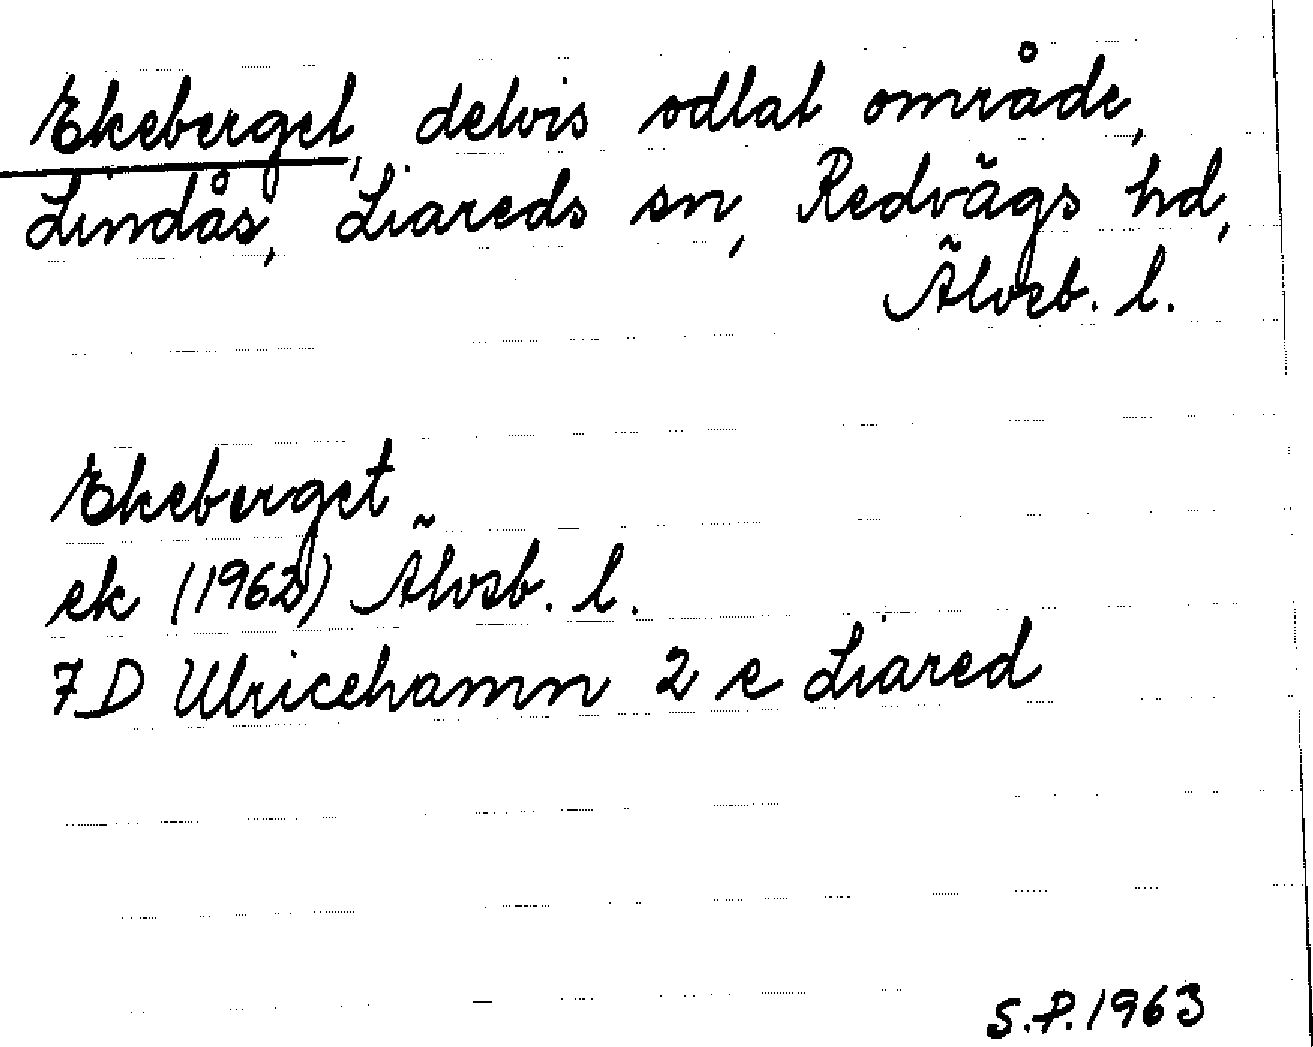 Ekeberget, delvis odlat område,
Lindås, Liareds sn, Redvägs hd,
Älvsb. l.
Ekeberget
ek (1962) Älvsb. l.
7D Ulricehamn 2 e Liared
S.P. 1963